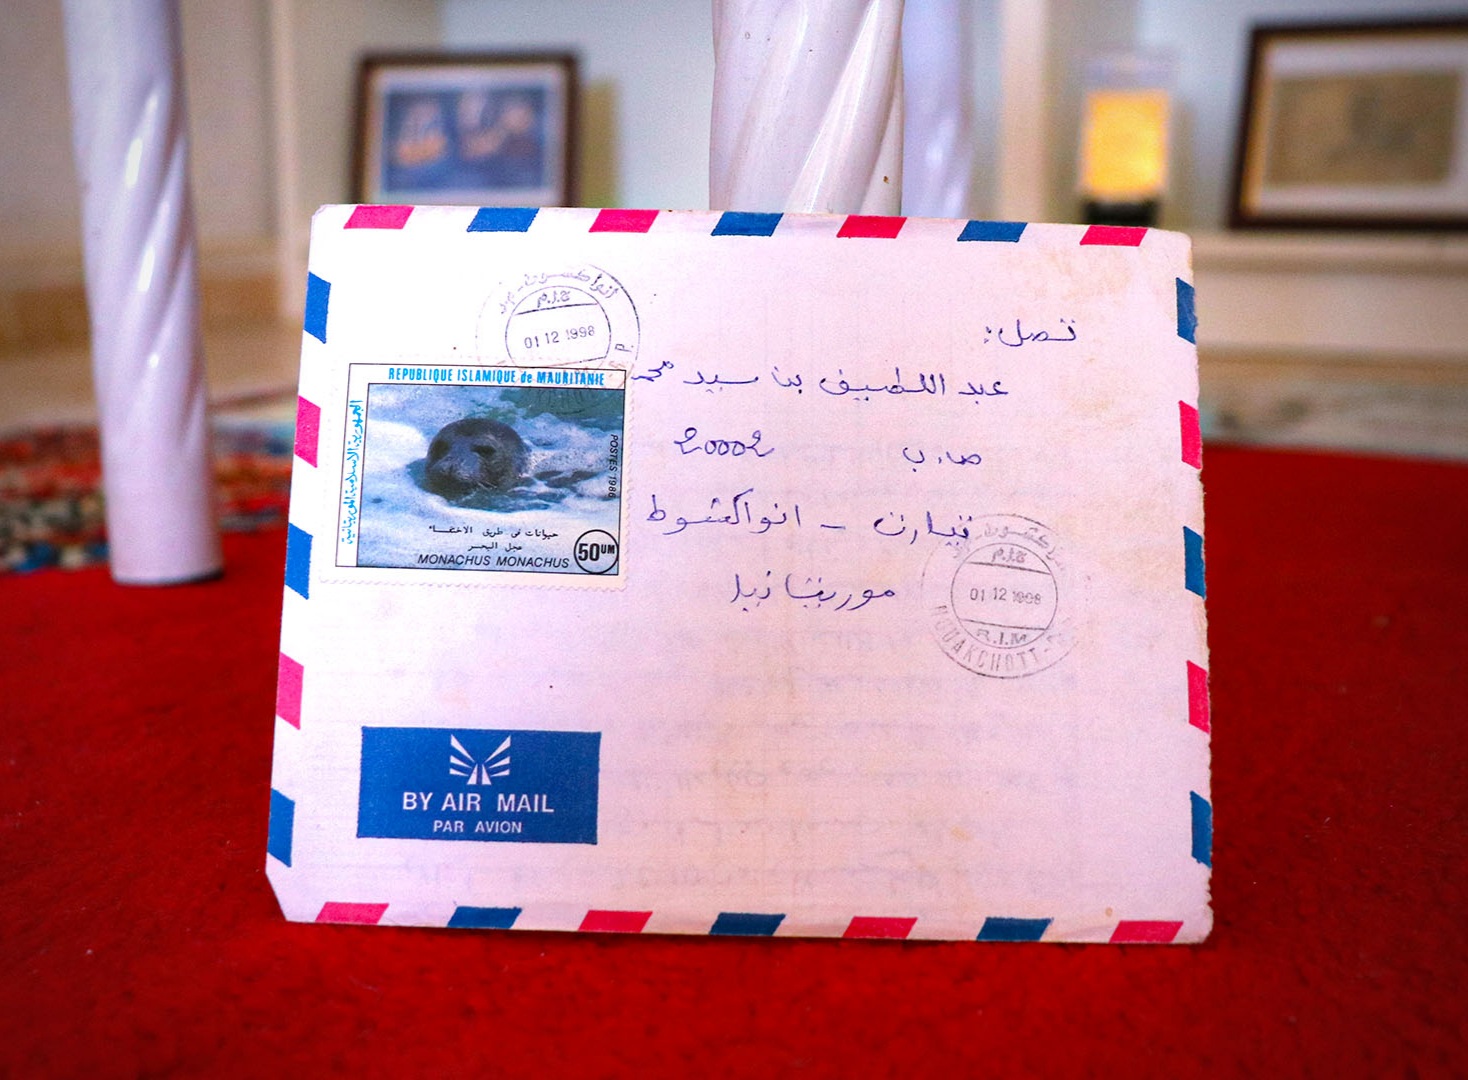 انواكشوط
ح.ا.م
01 12 1998
REPUBLIQUE ISLAMIQUE de MAURITANIE
الجمهورية الاسلامية الموريتانية
POSTES 1986
حيوانات فى طريق الاختفاء
عجل البحر
50UM
MONACHUS MONACHUS
تصل:
عبد اللطيف بن سيد محمد
ص.ب 20002
تيارت - انواكشوط
موريتانيا
ح.ا.م
01 12 1998
R.I.M
NOUAKCHOTT
BY AIR MAIL
PAR AVION